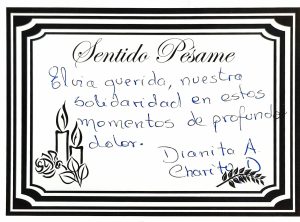 Sentido Pésame
Elvia querida, nuestra
solidaridad en estos
momentos de profundo
dolor.
Dianita A
Charito D